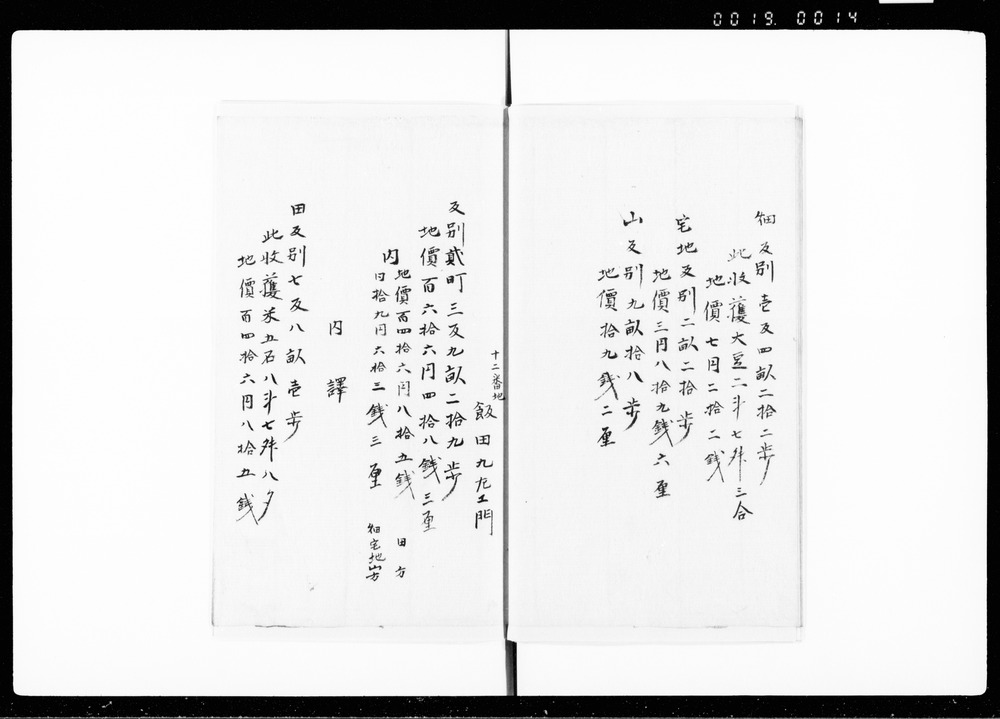 0019.0014
畑反別壱反四畝二拾二歩
此収護大豆二斗七舛三合
地價七円二拾二銭
宅地反別二畝二拾歩
地價三円八拾九銭六厘
山反別九畝拾八歩
地價拾九銭二厘
十二番地
飯田九左エ門
反別貳町三反九畝二拾九歩
地價百六拾六円四拾八銭三厘
内地價百四拾六円八拾五銭 田方
同拾九円六拾三銭三厘 畑宅地山方
内譯
田反別七反八畝壱歩
此収護米五石八斗七舛八夕
地價百四拾六円八拾五銭